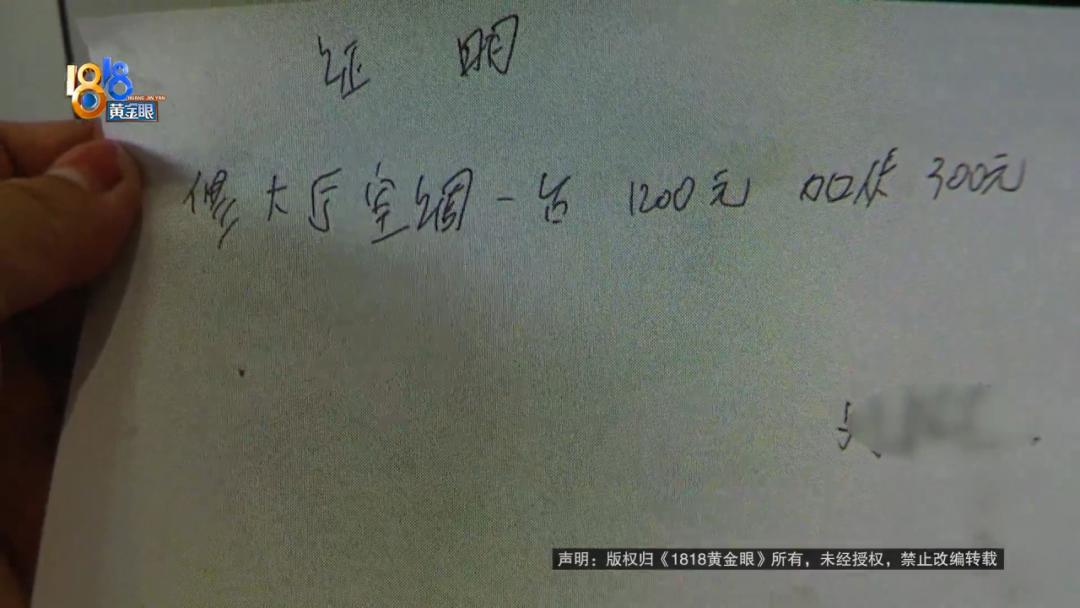 证明
1818
HUANG JIN YAN
黄金眼
修大厅空调一台 1200元 加伏 300元
声明：版权归《1818黄金眼》所有，未经授权，禁止改编转载